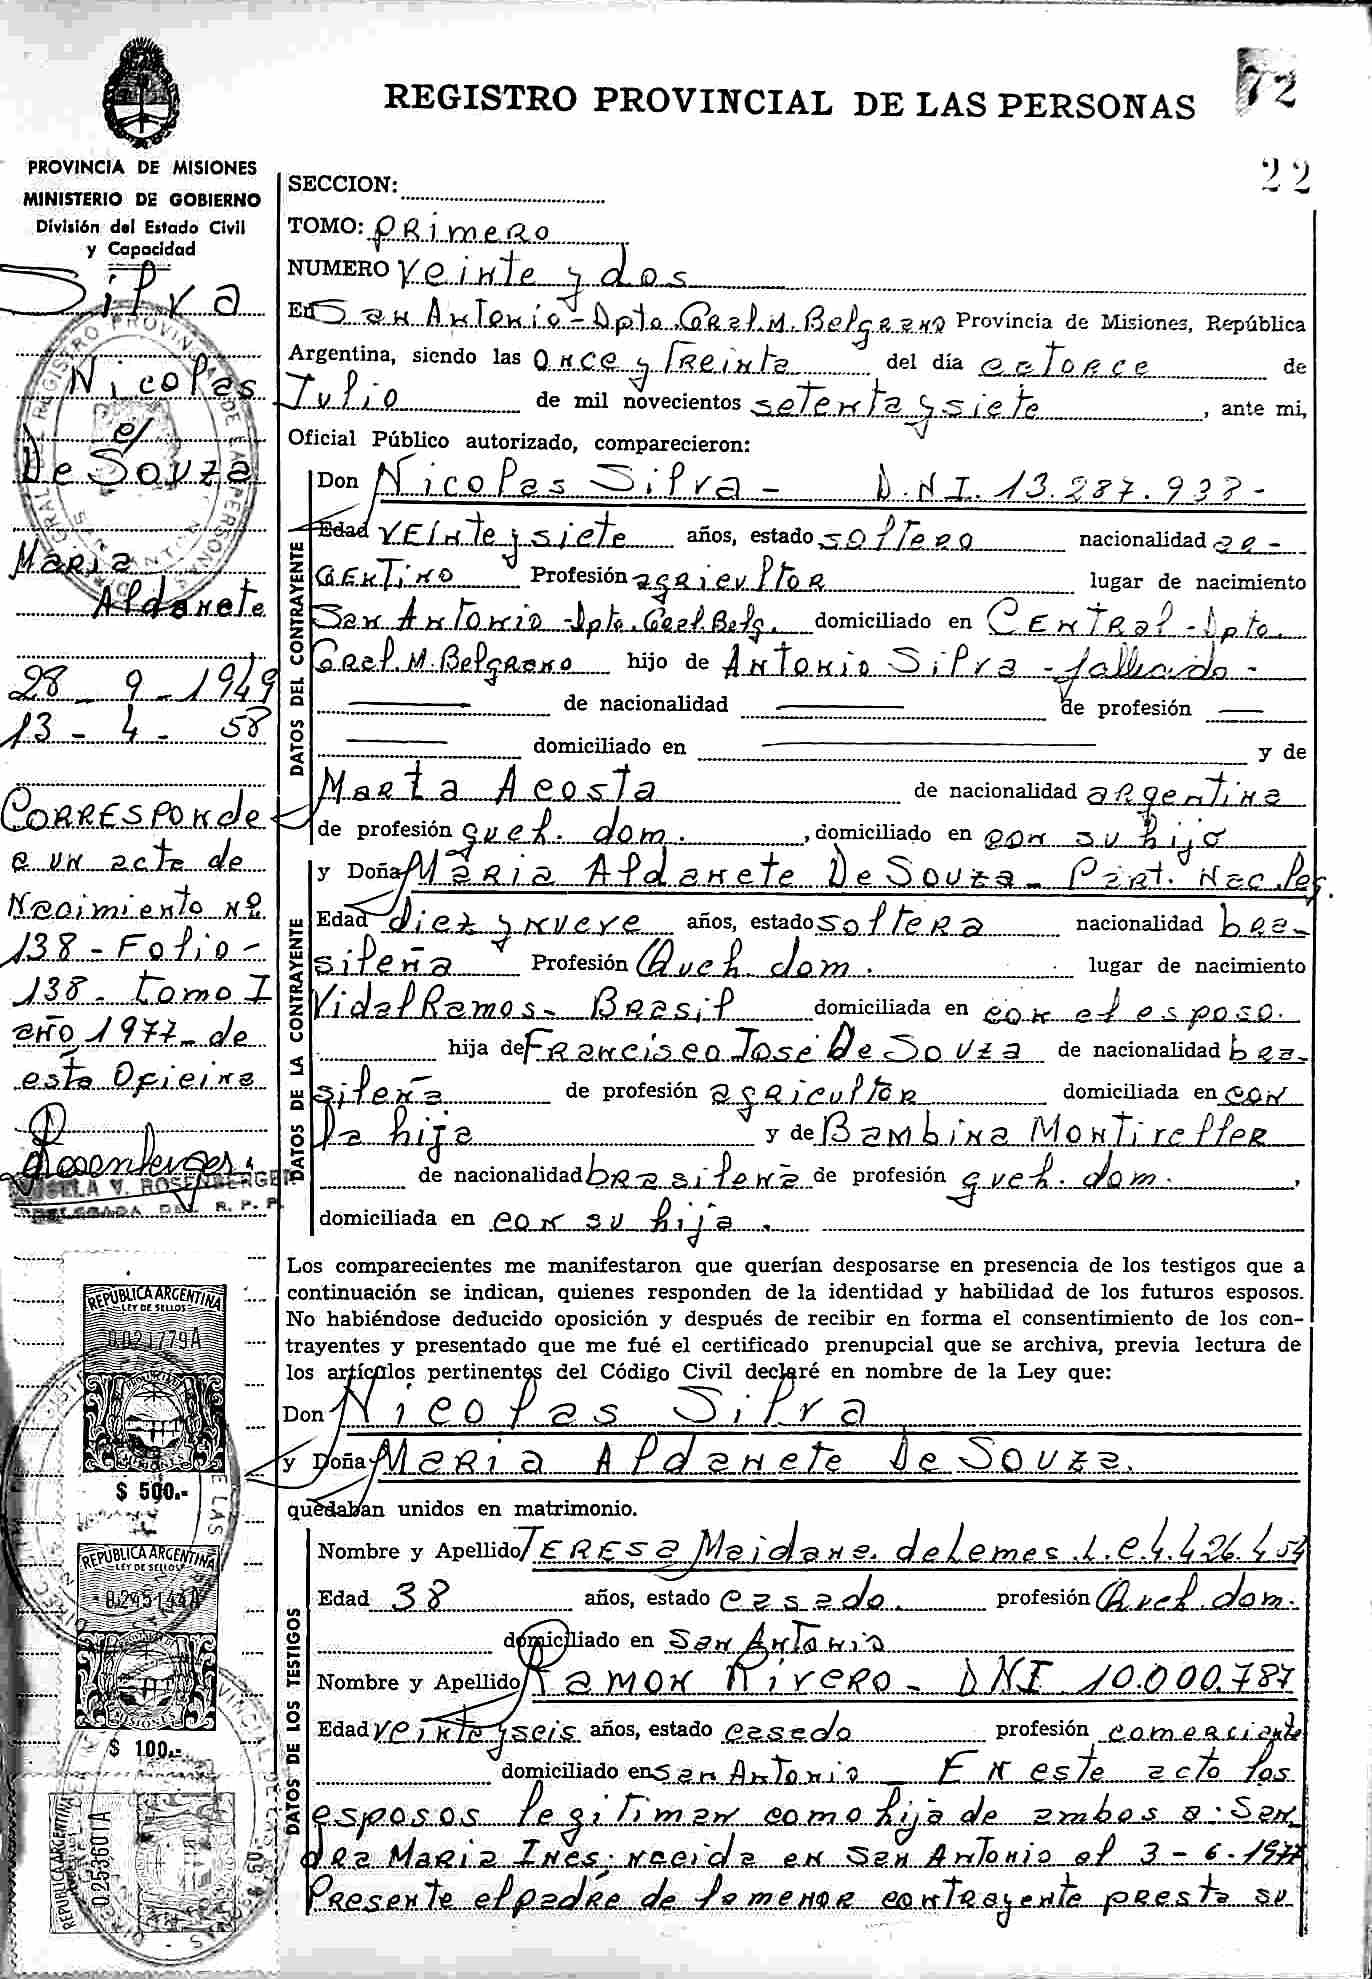 REGISTRO PROVINCIAL DE LAS PERSONAS
72
22
PROVINCIA DE MISIONES
MINISTERIO DE GOBIERNO
División del Estado Civil
y Capacidad
Silva
Nicolas
c/
De Souza
Maria
Aldanete
28 - 9 - 1949
13 - 4 - 58
CORRESPONde
a un acta de
Nacimiento nº
138 - Folio -
138 - tomo I
año 1977 - de
esta Oficina
SECCION:
TOMO: PRimeRo
NUMERO Veinte y dos
En San Antonio - Dpto Gral M. Belgrano Provincia de Misiones, República
Argentina, siendo las Once y Treinta del día catorce de
Julio de mil novecientos setenta y siete, ante mi,
Oficial Público autorizado, comparecieron:
DATOS DEL CONTRAYENTE
Don Nicolas Silva - D.N.I. 13.287.933 -
Edad VEinte y siete años, estado soltero nacionalidad ar-
GENTINO Profesión agricultor lugar de nacimiento
San Antonio - Dpto. Gral. Belg. domiciliado en CENTRal - Dpto.
Gral. M. Belgrano hijo de Antonio Silva - fallecido -
de nacionalidad de profesión
domiciliado en y de
Marta Acosta de nacionalidad argentina
de profesión queh. dom. , domiciliado en con su hijo
DATOS DE LA CONTRAYENTE
y Doña Maria Aldanete De Souza - Part. Nac. Leg.
Edad diez y nueve años, estado soltera nacionalidad bra-
sileña Profesión Queh. dom. lugar de nacimiento
Vidal Ramos - Brasil domiciliada en con el esposo.
hija de Francisco José De Souza de nacionalidad bra-
sileña de profesión agricultor domiciliada en con
la hija y de Bambina Montireller
de nacionalidad brasileña de profesión queh. dom. ,
domiciliada en con su hija .
Los comparecientes me manifestaron que querían desposarse en presencia de los testigos que a
continuación se indican, quienes responden de la identidad y habilidad de los futuros esposos.
No habiéndose deducido oposición y después de recibir en forma el consentimiento de los con-
trayentes y presentado que me fué el certificado prenupcial que se archiva, previa lectura de
los artículos pertinentes del Código Civil declaré en nombre de la Ley que:
Don Nicolas Silva
y Doña Maria Aldanete De Souza.
quedaban unidos en matrimonio.
DATOS DE LOS TESTIGOS
Nombre y Apellido TERESa Maidana. de Lemes. L.C. 4.426.454
Edad 38 años, estado casado. profesión Queh. dom.
domiciliado en San Antonio
Nombre y Apellido Ramon Rivero - DNI 10.000.787
Edad veinte y seis años, estado casado profesión comerciante
domiciliado en San Antonio - En este acto los
esposos legitiman como hija de ambos a: San
dra Maria Ines; nacida en San Antonio el 3 - 6 - 1977
Presente el padre de la menor contrayente presta su
ROSENBERGER
R. P. P.
REPUBLICA ARGENTINA
LEY DE SELLOS
0021779A
MISIONES
$ 500.-
REPUBLICA ARGENTINA
LEY DE SELLOS
MISIONES
$ 100.-
REPUBLICA ARGENTINA
0253601A